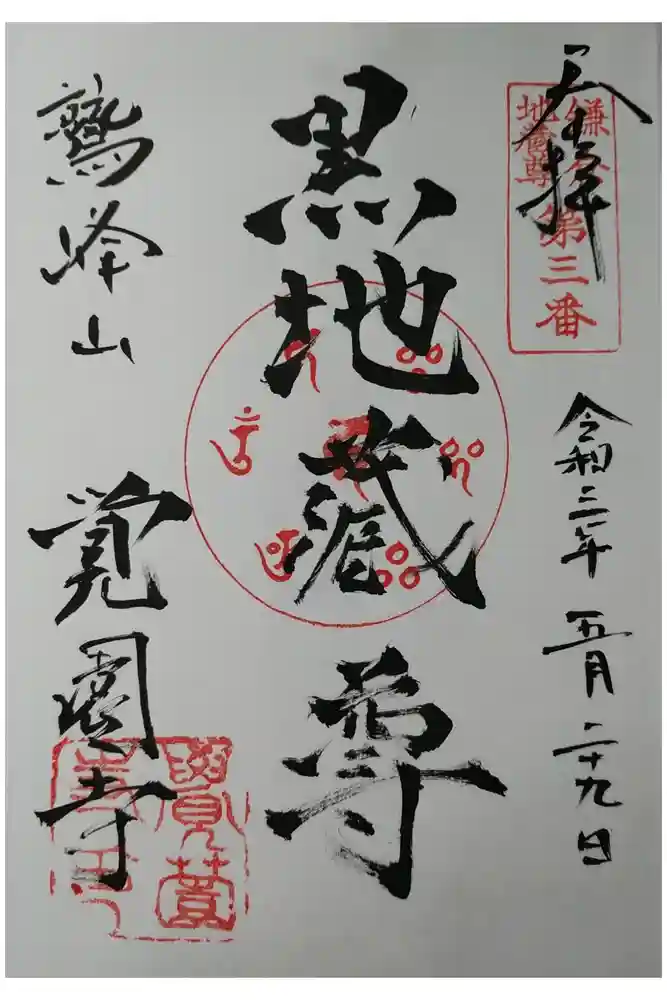 奉拝
鎌倉
地蔵尊
第三番
令和三年 五月 二十九日
黒地蔵尊
鷲峰山 覚園寺
覺薗